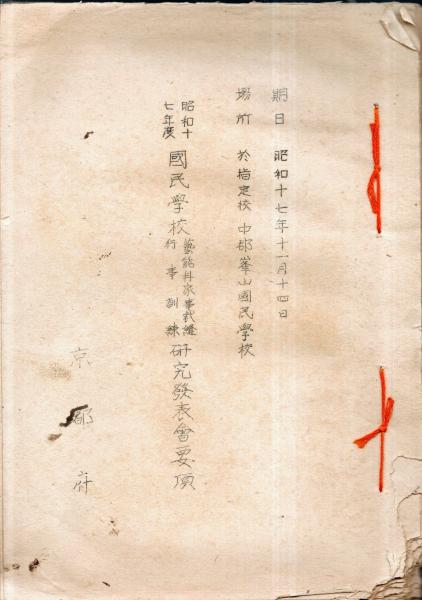 期日 昭和十七年十一月十四日
場所 於指定校 中郡峯山國民學校
昭和十七年度 國民學校 藝能科家事裁縫 行事訓練 研究發表會要項
京都府